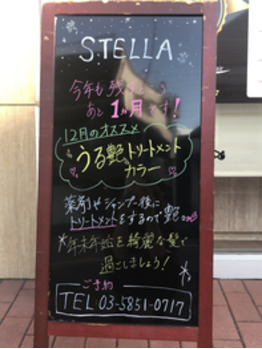 STELLA
今年も残すところ
あと1ヵ月です!
12月のオススメ
うる艶トリートメント
カラー
薬剤やシャンプー後に
トリートメントをするので艶
*年末年始を綺麗な髪で
過ごしましょう! *
ご予約
TEL 03-5851-0717